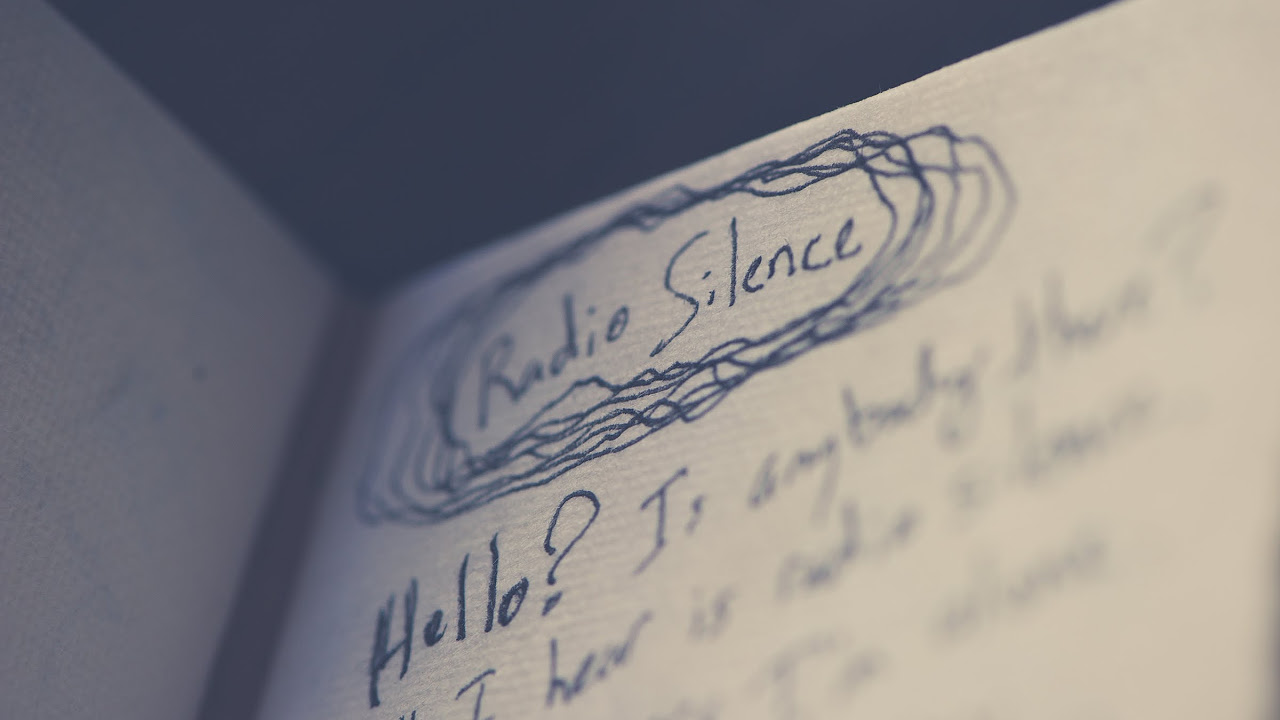 Radio Silence
Hello? Is anybody there?
I hear is radio silence
I'm alone